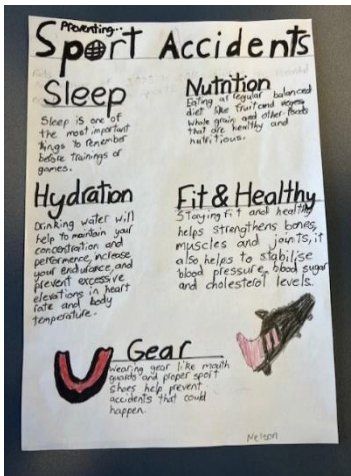 Preventing...
Sport Accidents
Sleep
Sleep is one of
the most important
things to remember
before trainings or
games.
Nutrition
Eating a regular balanced
diet like fruit and
whole grain and other foods
that are healthy and
nutritious.
Hydration
Drinking water will
help to maintain your
concentration and
performance, increase
your endurance, and
prevent excessive
elevations in heart
rate and body
temperature.
Fit & Healthy
Staying fit and healthy
helps strengthens bones,
muscles and joints, it
also helps to stabilise
blood pressure, blood sugar
and cholesterol levels.
Gear
Wearing gear like mouth
guards and proper sport
shoes help prevent
accidents that could
happen.
Nelson